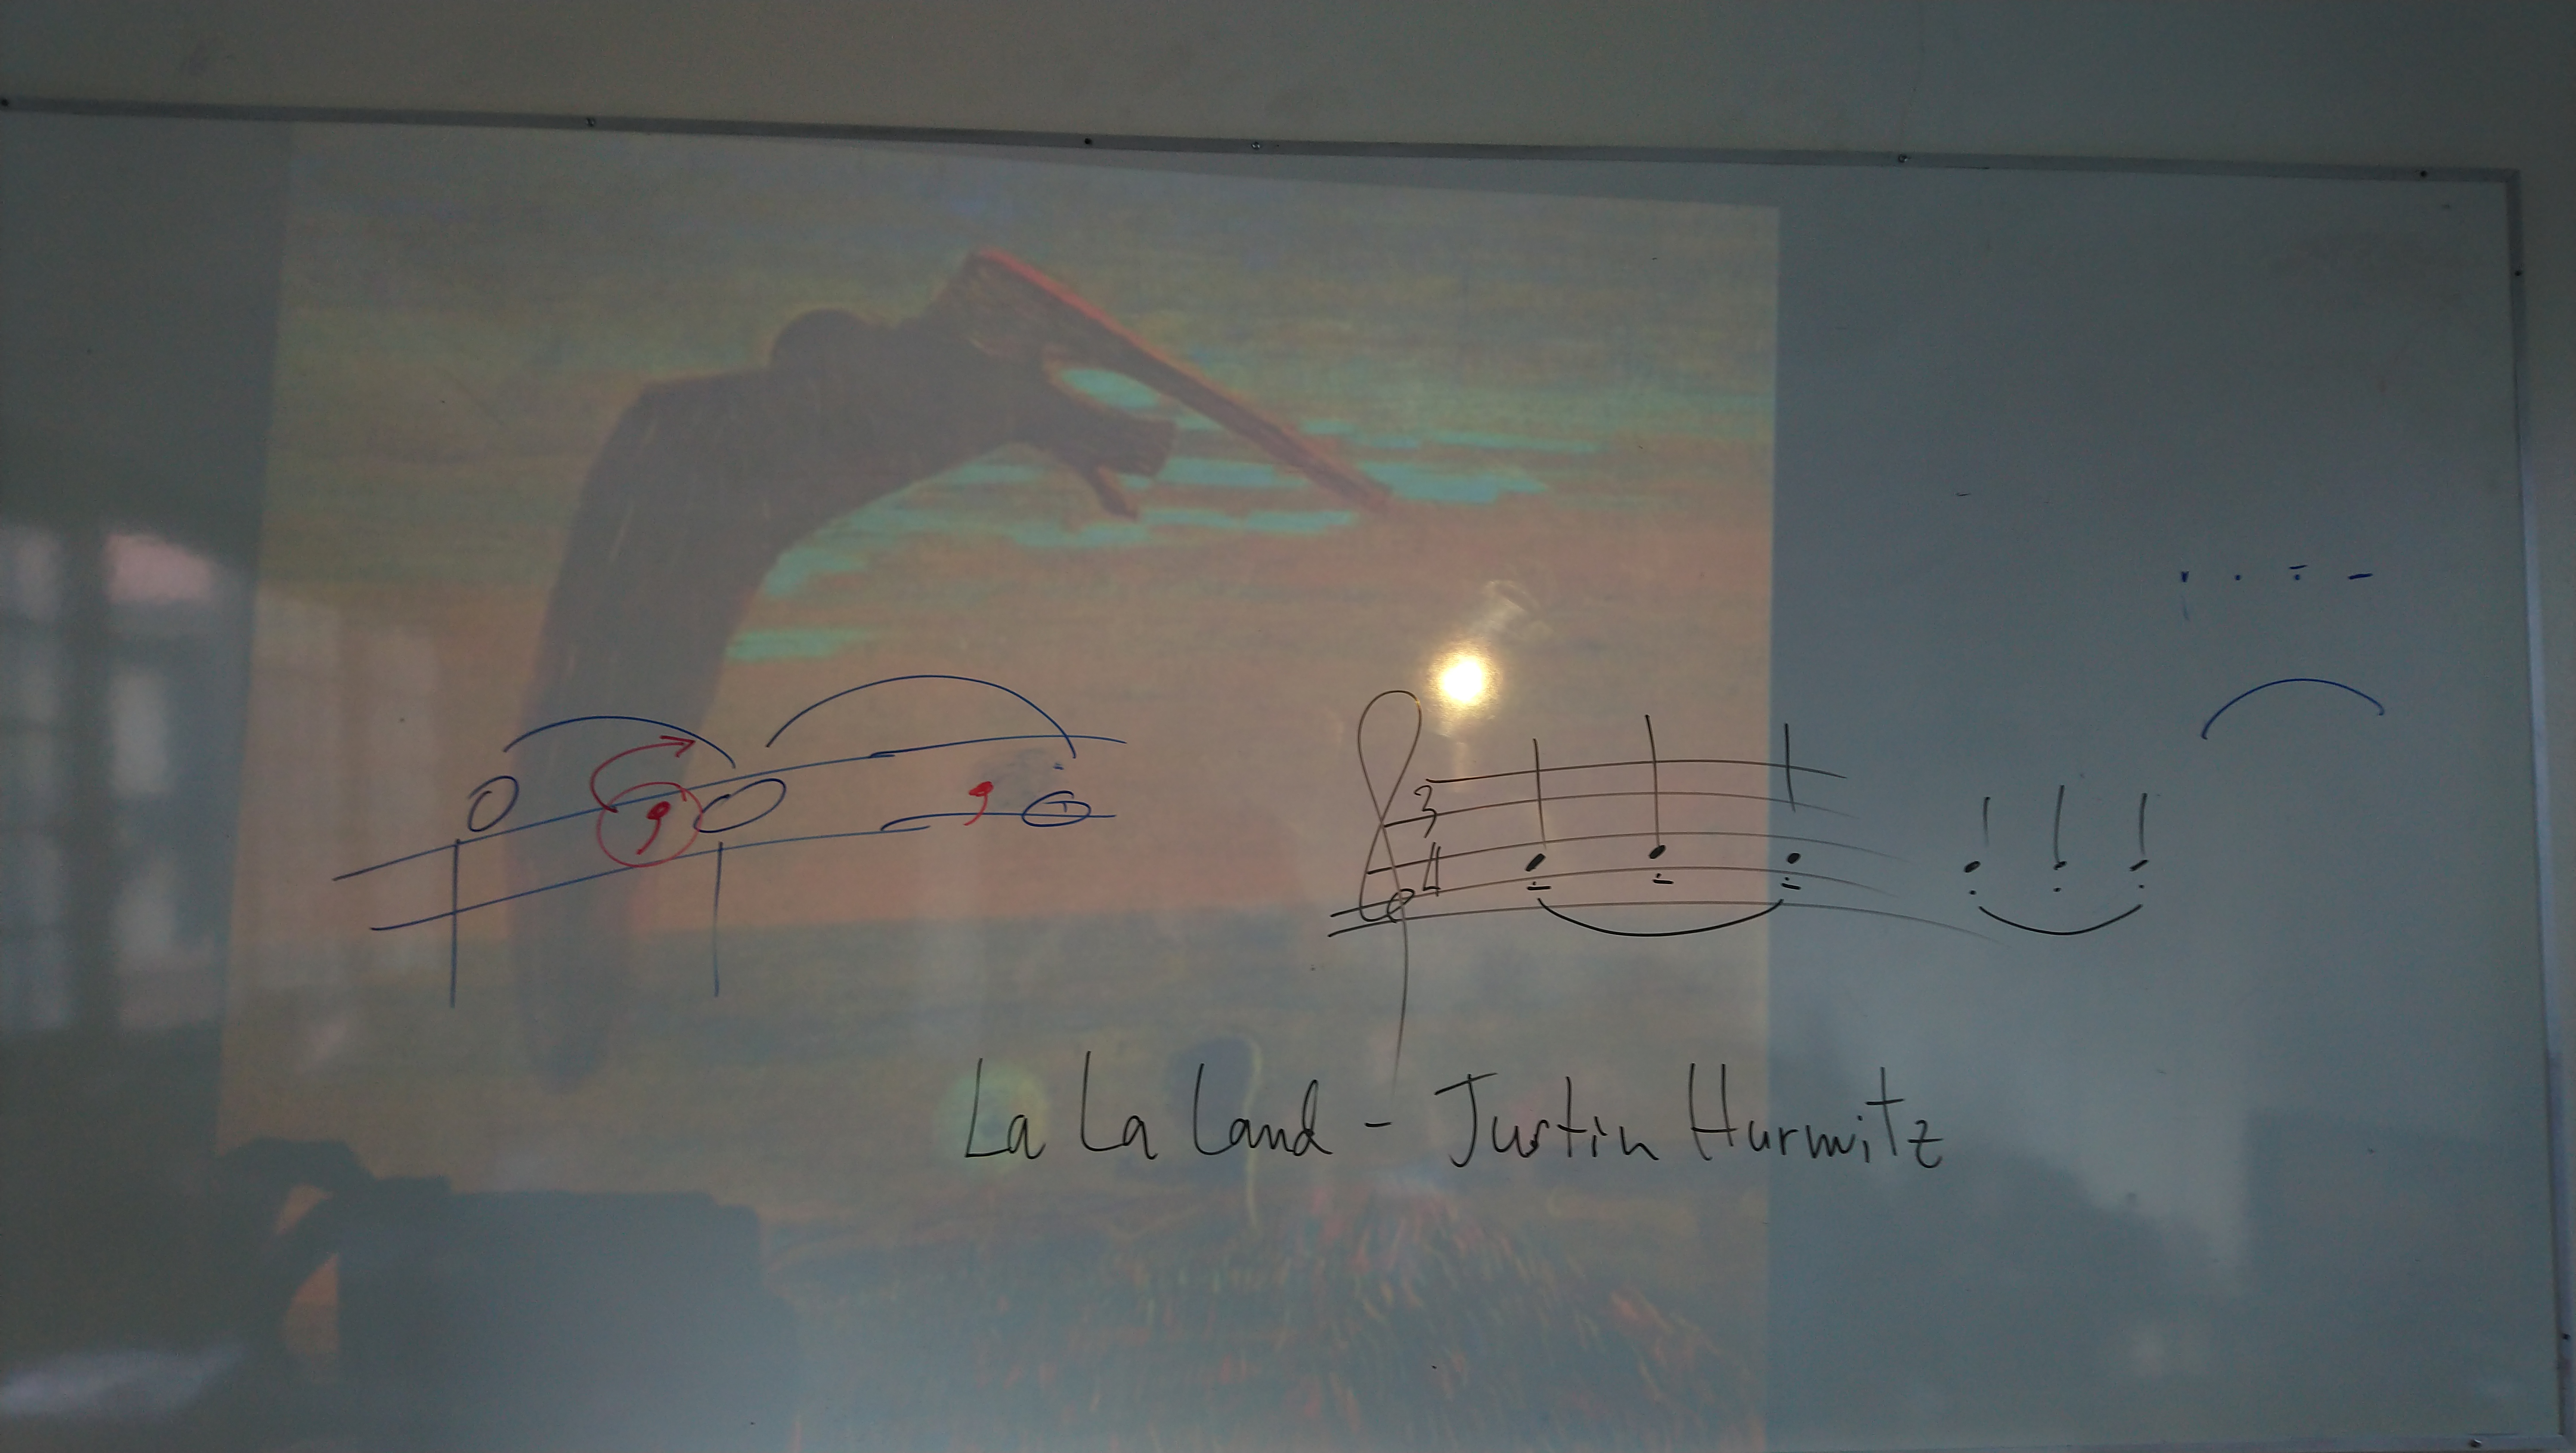 3
4
La La Land - Justin Hurwitz